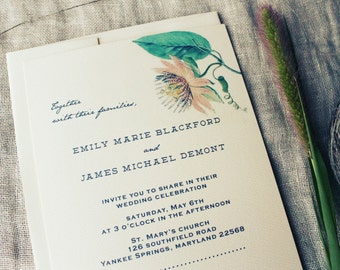 Together
with their families,
EMILY MARIE BLACKFORD
and
JAMES MICHAEL DEMONT
INVITE YOU TO SHARE IN THEIR
WEDDING CELEBRATION
SATURDAY, MAY 6TH
AT 3 O'CLOCK IN THE AFTERNOON
ST. MARY'S CHURCH
126 SOUTHFIELD ROAD
YANKEE SPRINGS, MARYLAND 22568